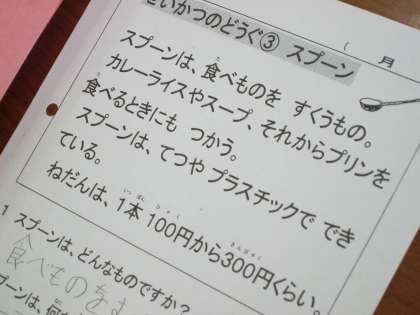 せいかつのどうぐ③ スプーン
( 月
スプーンは、食べものを すくうもの。
カレーライスやスープ、それからプリンを
食べるときにも つかう。
スプーンは、てつや プラスチックで でき
ている。
ねだんは、1本 100円から300円くらい。
1 スプーンは、どんなものですか?
食べものをす
プーンは、何